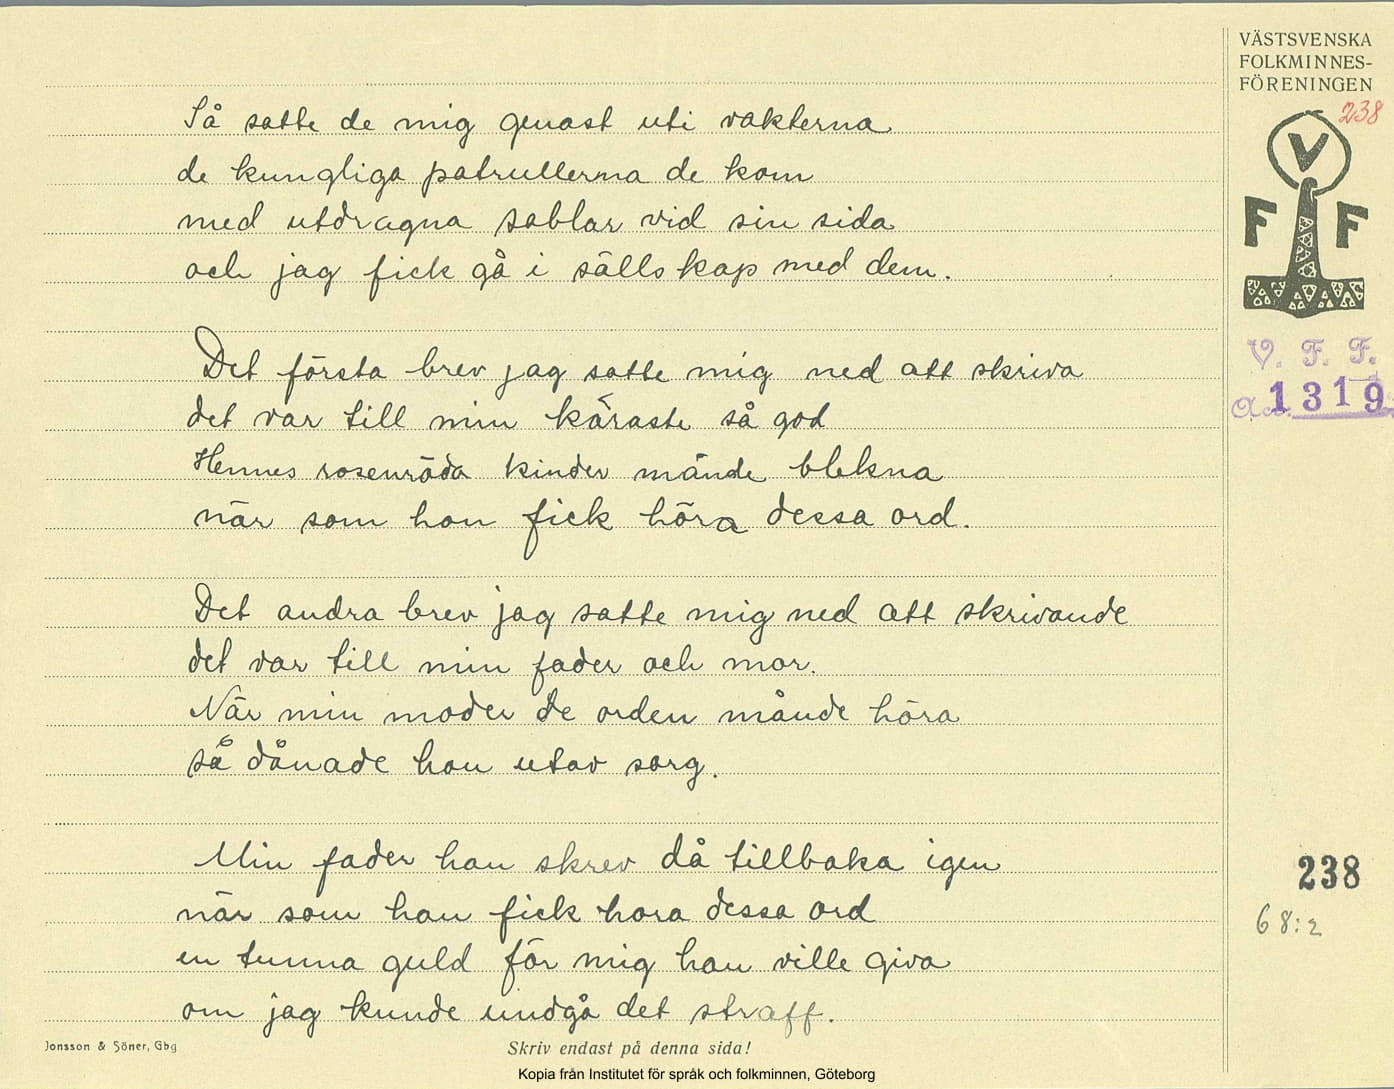 VÄSTSVENSKA
FOLKMINNES-
FÖRENINGEN
238
V
F F
V. F. F.
Acc. 1319
Så satte de mig genast uti vakterna
de kungliga patrullerna de kom
med utdragna sablar vid sin sida
och jag fick gå i sällskap med dem.
Det första brev jag satte mig ned att skriva
det var till min käraste så god
Hennes rosenröda kinder månde blekna
när som hon fick höra dessa ord.
Det andra brev jag satte mig ned att skrivande
det var till min fader och mor.
När min moder de orden månde höra
så dånade hon utav sorg.
Min fader han skrev då tillbaka igen
när som han fick hora dessa ord
en tunna guld för mig han ville giva
om jag kunde undgå det straff.
238
68:2
Jonsson & Söner, Gbg
Skriv endast på denna sida!
Kopia från Institutet för språk och folkminnen, Göteborg